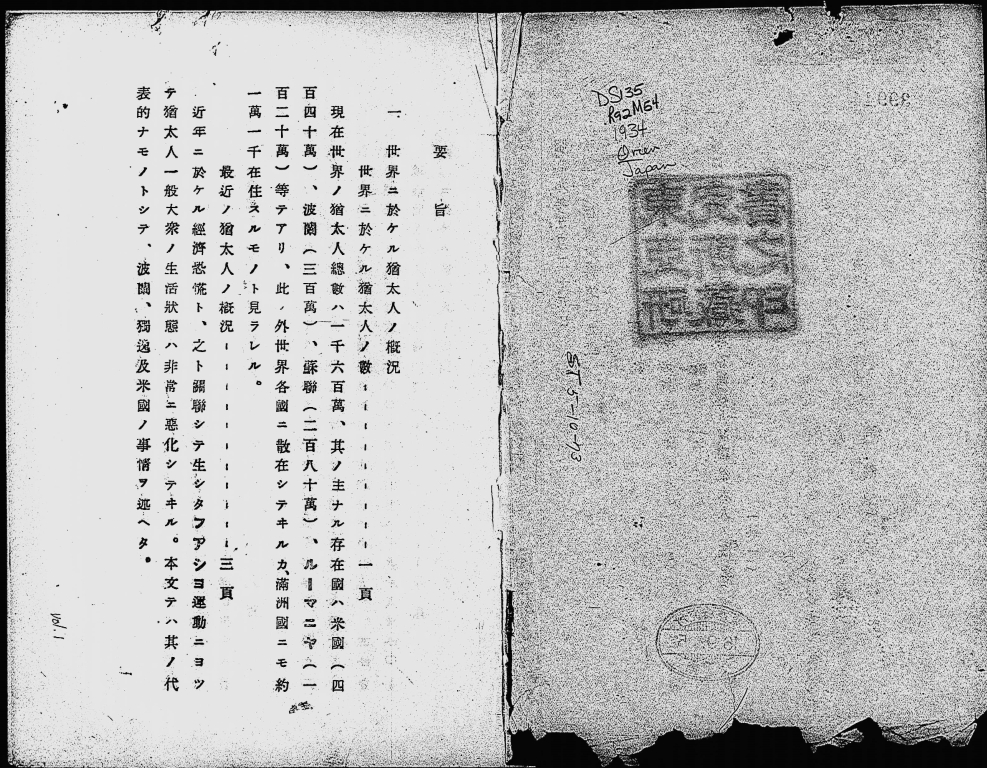 DS135
R92M64
1934
Orien
Japan
SET 5-10-73
要旨
一 世界ニ於ケル猶太人ノ概況
世界ニ於ケル猶太人ノ數 一頁
現在世界ノ猶太人總數ハ一千六百萬、其ノ主ナル存在國ハ米國（四
百四十萬）、波蘭（三百萬）、蘇聯（二百八十萬）、ルーマニヤ（一
百二十萬）等テアリ、此ノ外世界各國ニ散在シテヰルカ、滿洲國ニモ約
一萬一千在住スルモノト見ラレル。
最近ノ猶太人ノ概況 三頁
近年ニ於ケル經濟恐慌ト、之ト關聯シテ生シタフアシヨ運動ニヨツ
テ猶太人一般大衆ノ生活狀態ハ非常ニ惡化シテヰル。本文テハ其ノ代
表的ナモノトシテ、波蘭、獨逸及米國ノ事情ヲ述ヘタ。
Vol. 1